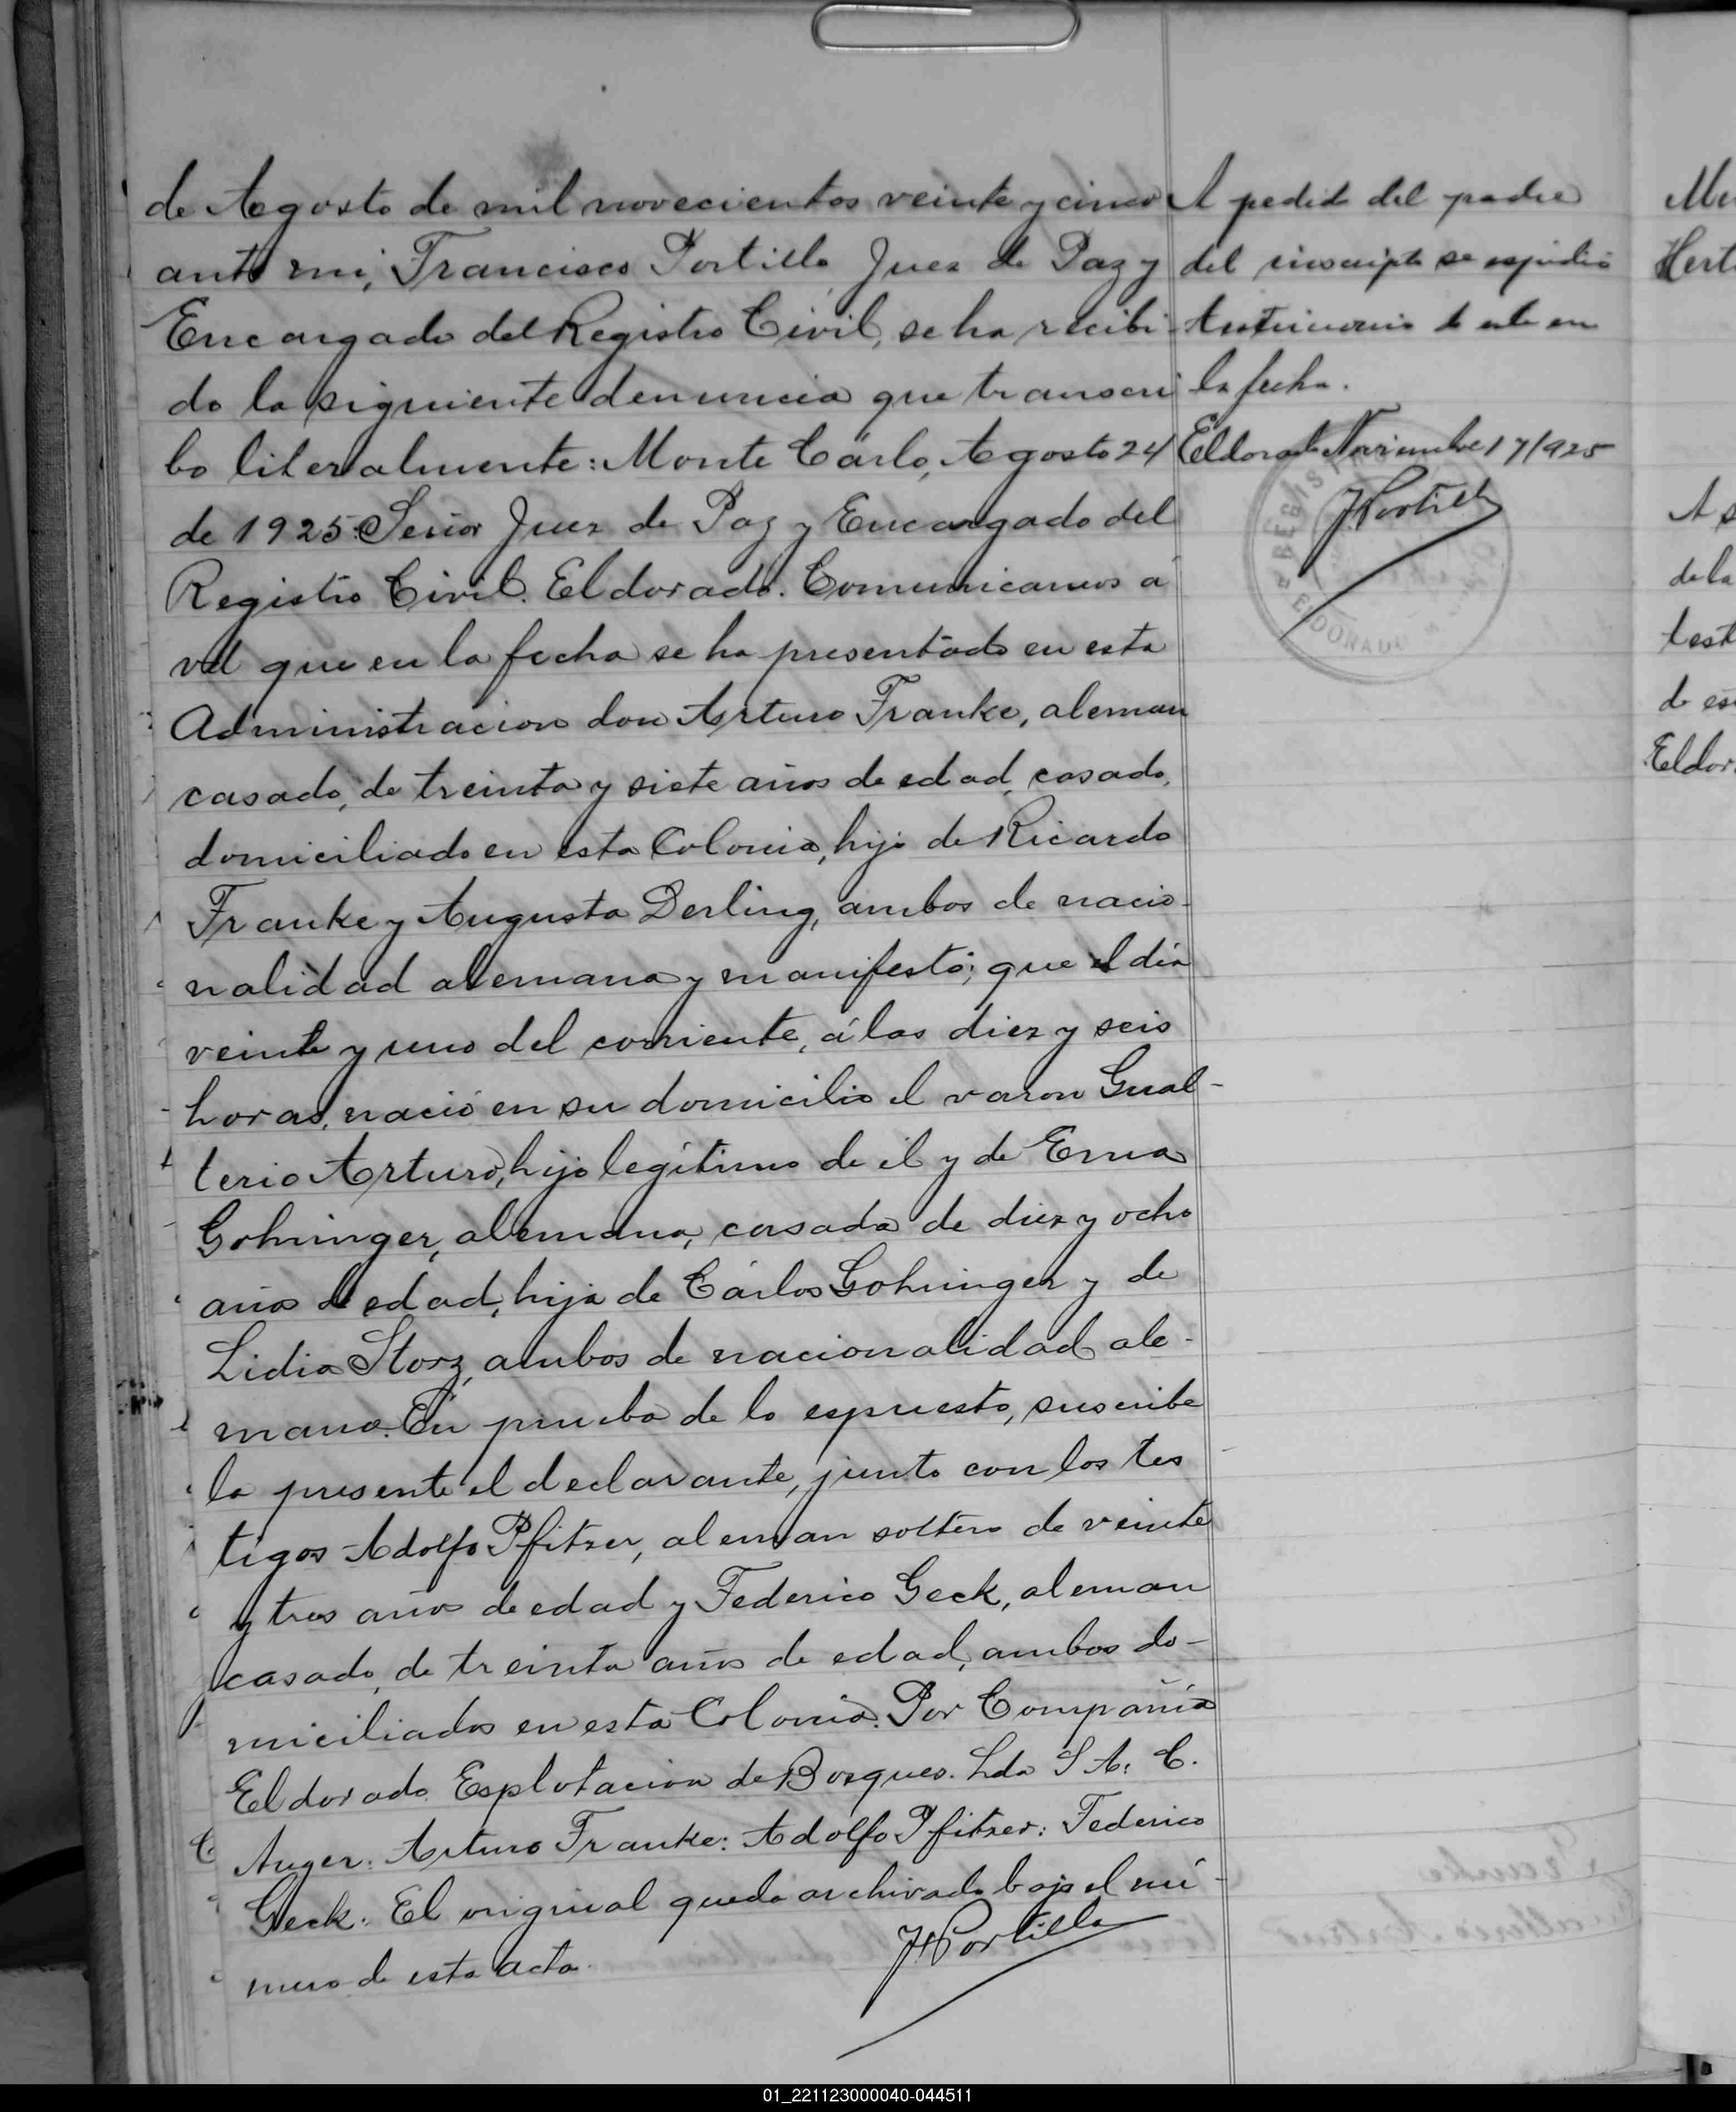 de Agosto de mil novecientos veinte y cinco
ante mi, Francisco Portillo, Juez de Paz y
Encargado del Registro Civil, se ha recibi
do la siguiente denuncia que transcri
bo literalmente: Monte Cárlo, Agosto 24
de 1925. Señor Juez de Paz y Encargado del
Registro Civil. Eldorado. Comunicamos á
vd que en la fecha se ha presentado en esta
Administracion don Arturo Franke, aleman
casado, de treinta y siete años de edad, casado,
domiciliado en esta Colonia, hijo de Ricardo
Franke y Augusta Derling, ambos de nacio-
nalidad alemana y manifestó; que el día
veinte y uno del corriente, á las diez y seis
horas, nació en su domicilio el varon Gual-
terio Arturo, hijo legítimo de él y de Erna
Gohringer, alemana, casada de diez y ocho
años de edad, hija de Cárlos Gohringer y de
Lidia Storz, ambos de nacionalidad ale-
mana. En prueba de lo espuesto, suscribe
la presente el declarante, junto con los tes
tigos Adolfo Pfitzer, aleman soltero de veinte
y tres años de edad y Federico Geck, aleman
casado, de treinta años de edad, ambos do-
miciliados en esta Colonia. Por Compañia
Eldorado Esplotacion de Bosques. Lda S. A. C.
Auger: Arturo Franke: Adolfo Pfitzer: Federico
Geck: El original queda archivado bajo el nú-
mero de esta acta.
JPortillo
A pedido del padre
del inscripto se expidió
testimonio de este en
la fecha.
Eldorado Noviembre 17/925
JPortillo
REGISTRO
ELDORADO
Me
Hert
A p
de la
test
de es
Eldor
01_221123000040-044511